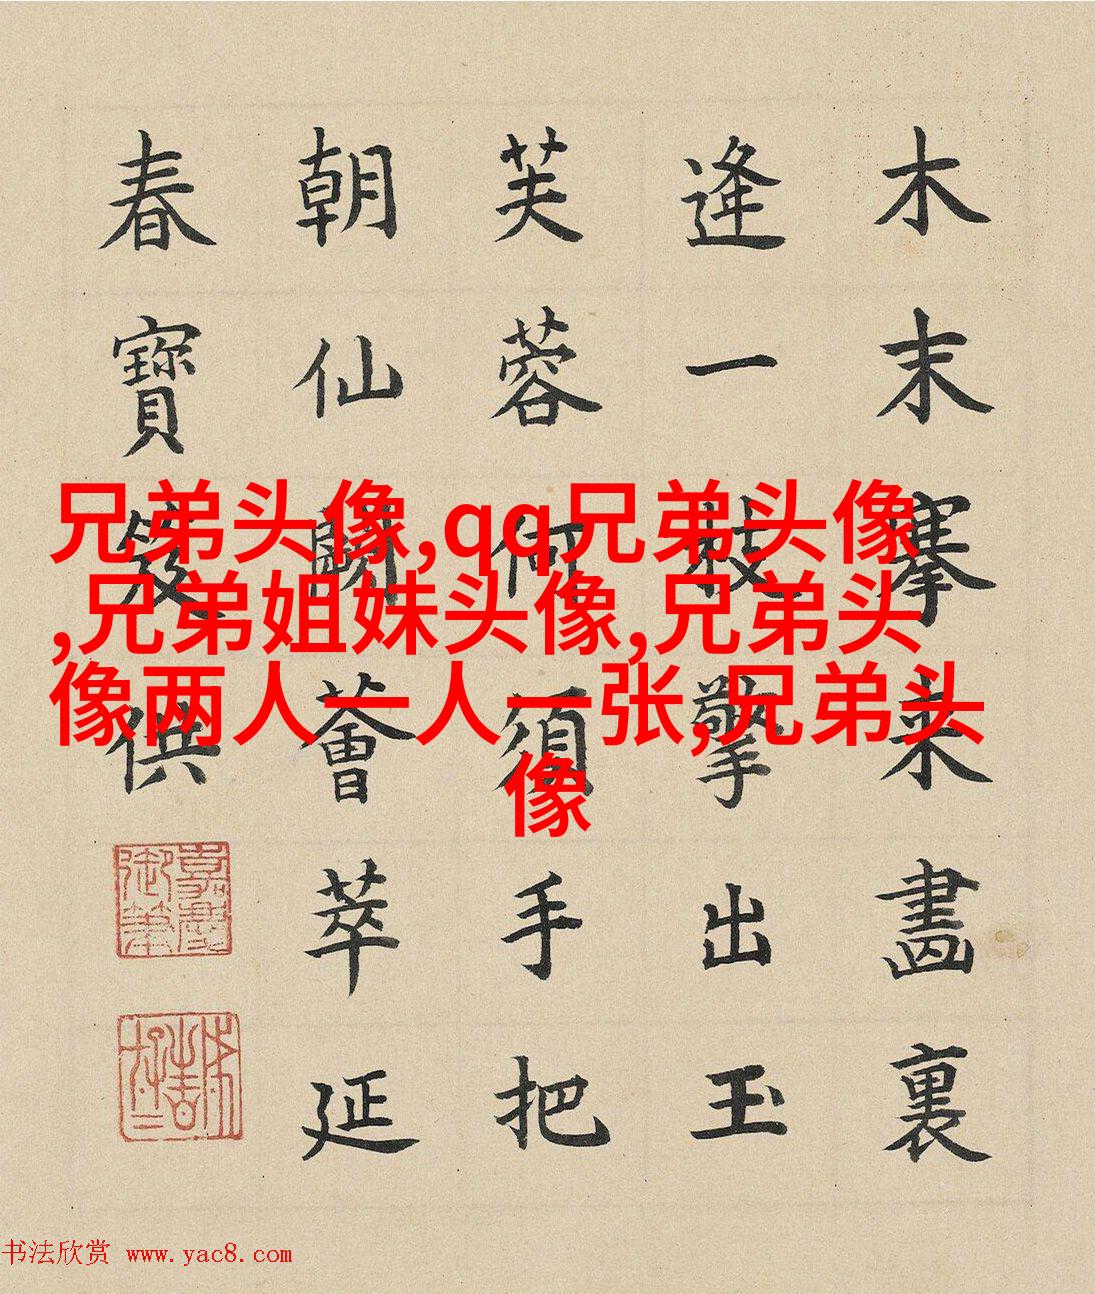 木末搴来畫裏
逢一枝擎出玉
芙蓉何須手把
朝仙闕薈萃延
春寶笈供
嘉慶御筆
兄弟头像,qq兄弟头像
,兄弟姐妹头像,兄弟头
像两人一人一张,兄弟头
像
书法欣赏 www.yac8.com